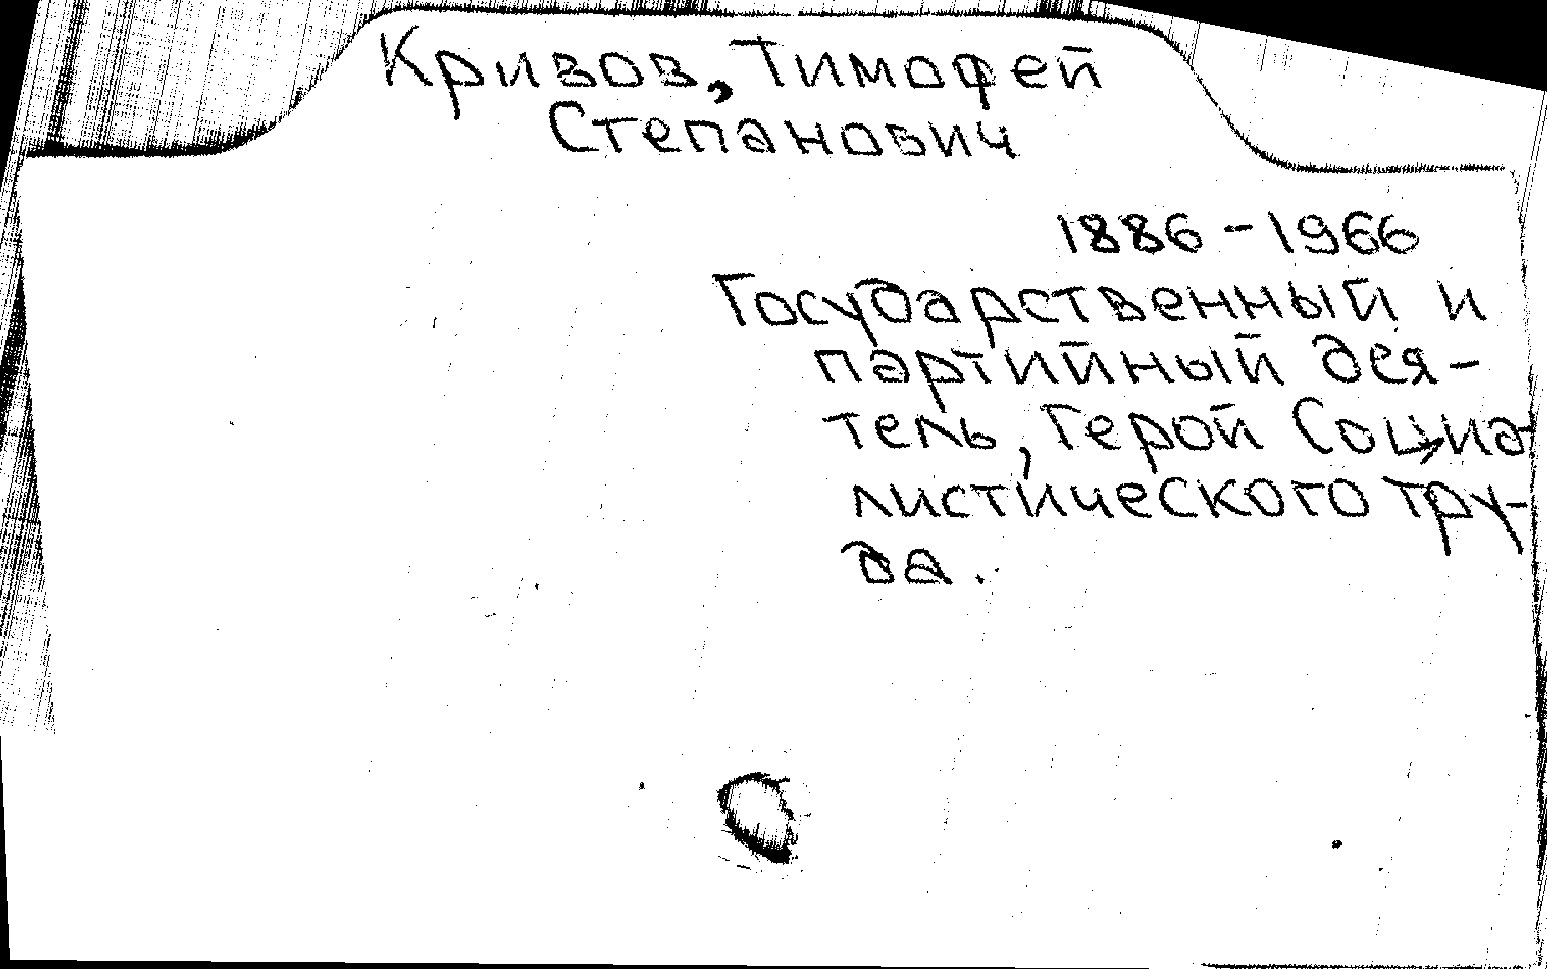 Кривов, Тимофей
Степанович
1886-1966
Государственный и
партийный дея-
тель, Герой Социа-
листического тру-
да.